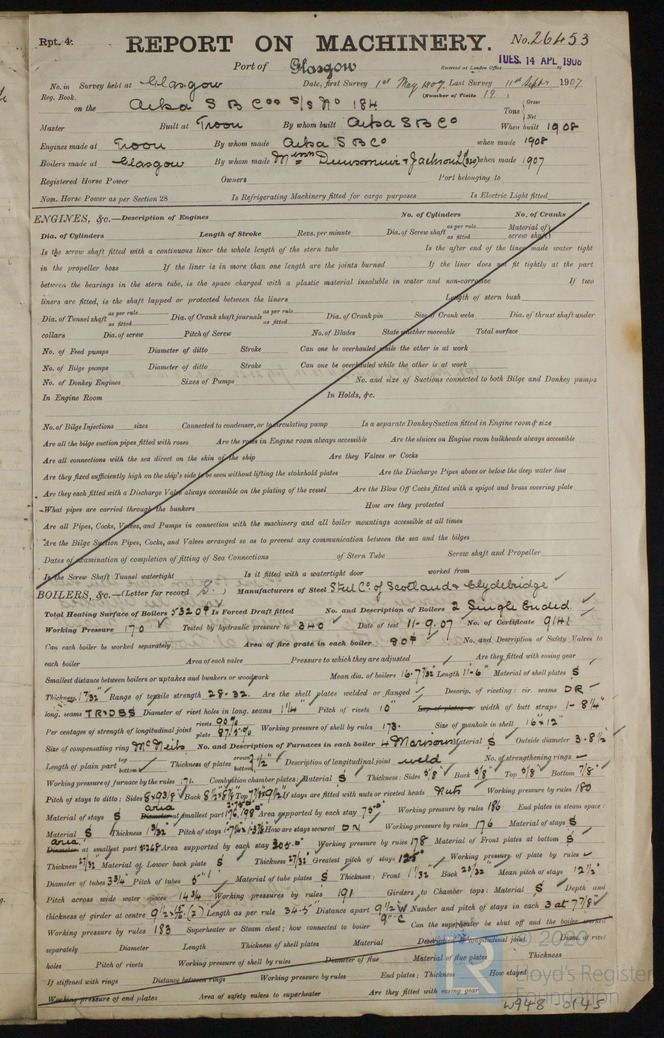 Rpt. 4.
REPORT ON MACHINERY.
No. 26453
Port of Glasgow
Received at London Office TUES. 14 APL 1908
No. in Survey held at Glasgow Date, first Survey 1st May 1907 Last Survey 11th Septr 1907
Reg. Book. (Number of Visits 19)
on the Ailsa S B Cos S/S No 184 Tons Gross Net
Master Built at Troon By whom built Ailsa S B Co When built 1908
Engines made at Troon By whom made Ailsa S B Co when made 1908
Boilers made at Glasgow By whom made Messrs Dunsmuir & Jackson Ld when made 1907
Registered Horse Power Owners Port belonging to
Nom. Horse Power as per Section 28 Is Refrigerating Machinery fitted for cargo purposes Is Electric Light fitted
ENGINES, &c.—Description of Engines No. of Cylinders No. of Cranks
Dia. of Cylinders Length of Stroke Revs. per minute Dia. of Screw shaft as per rule as fitted Material of screw shaft
Is the screw shaft fitted with a continuous liner the whole length of the stern tube Is the after end of the liner made water tight
in the propeller boss If the liner is in more than one length are the joints burned If the liner does not fit tightly at the part
between the bearings in the stern tube, is the space charged with a plastic material insoluble in water and non-corrosive If two
liners are fitted, is the shaft lapped or protected between the liners Length of stern bush
Dia. of Tunnel shaft as per rule as fitted Dia. of Crank shaft journals as per rule as fitted Dia. of Crank pin Size of Crank webs Dia. of thrust shaft under
collars Dia. of screw Pitch of Screw No. of Blades State whether moveable Total surface
No. of Feed pumps Diameter of ditto Stroke Can one be overhauled while the other is at work
No. of Bilge pumps Diameter of ditto Stroke Can one be overhauled while the other is at work
No. of Donkey Engines Sizes of Pumps No. and size of Suctions connected to both Bilge and Donkey pumps
In Engine Room In Holds, &c.
No. of Bilge Injections sizes Connected to condenser, or to circulating pump Is a separate Donkey Suction fitted in Engine room & size
Are all the bilge suction pipes fitted with roses Are the roses in Engine room always accessible Are the sluices on Engine room bulkheads always accessible
Are all connections with the sea direct on the skin of the ship Are they Valves or Cocks
Are they fixed sufficiently high on the ship's side to be seen without lifting the stokehold plates Are the Discharge Pipes above or below the deep water line
Are they each fitted with a Discharge Valve always accessible on the plating of the vessel Are the Blow Off Cocks fitted with a spigot and brass covering plate
What pipes are carried through the bunkers How are they protected
Are all Pipes, Cocks, Valves, and Pumps in connection with the machinery and all boiler mountings accessible at all times
Are the Bilge Suction Pipes, Cocks, and Valves arranged so as to prevent any communication between the sea and the bilges
Dates of examination of completion of fitting of Sea Connections of Stern Tube Screw shaft and Propeller
Is the Screw Shaft Tunnel watertight Is it fitted with a watertight door worked from
BOILERS, &c.—(Letter for record S.) Manufacturers of Steel Steel Co. of Scotland & Clydebridge
Total Heating Surface of Boilers 5320 Is Forced Draft fitted No. and Description of Boilers 2 Single Ended.
Working Pressure 170 Tested by hydraulic pressure to 340 Date of test 11-9-07 No. of Certificate 9141
Can each boiler be worked separately Area of fire grate in each boiler 80 No. and Description of Safety Valves to
each boiler Area of each valve Pressure to which they are adjusted Are they fitted with easing gear
Smallest distance between boilers or uptakes and bunkers or woodwork Mean dia. of boilers Length 11-6" Material of shell plates S
Thickness 1 7/32 Range of tensile strength 28-32. Are the shell plates welded or flanged Descrip. of riveting: cir. seams DR
long. seams TRDBS Diameter of rivet holes in long. seams 1 1/4" Pitch of rivets 10" width of butt straps 1-8 1/4"
Per centages of strength of longitudinal joint rivets 90% plate 87.5% Working pressure of shell by rules 173 Size of manhole in shell 16"x12"
Size of compensating ring McNeils No. and Description of Furnaces in each boiler 4 Morisons Material S Outside diameter 3-8 1/2
Length of plain part top bottom Thickness of plates crown bottom Description of longitudinal joint weld No. of strengthening rings
Working pressure of furnace by the rules 171 Combustion chamber plates: Material S Thickness: Sides 5/8 Back 5/8 Top 5/8 Bottom 7/8
Pitch of stays to ditto: Sides Back Top If stays are fitted with nuts or riveted heads Nuts Working pressure by rules 180
Material of stays S area at smallest part Area supported by each stay Working pressure by rules 186 End plates in steam space:
Material S Thickness Pitch of stays How are stays secured DN Working pressure by rules 176 Material of stays S
area at smallest part Area supported by each stay Working pressure by rules 178 Material of Front plates at bottom S
Thickness 27/32 Material of Lower back plate S Thickness 27/32 Greatest pitch of stays Working pressure of plate by rules
Diameter of tubes 3 3/4 Pitch of tubes Material of tube plates S Thickness: Front Back Mean pitch of stays 12 1/2
Pitch across wide water spaces 14 3/4 Working pressures by rules 191 Girders to Chamber tops: Material S Depth and
thickness of girder at centre Length as per rule 34.5" Distance apart 9 1/2 W 9" C Number and pitch of stays in each 3 at 7 7/8
Working pressure by rules 183 Superheater or Steam chest; how connected to boiler Can the superheater be shut off and the boiler worked
separately Diameter Length Thickness of shell plates Material Description of longitudinal joint Diam. of rivet
holes Pitch of rivets Working pressure of shell by rules Diameter of flue Material of flue plates Thickness
If stiffened with rings Distance between rings Working pressure by rules End plates; Thickness How stayed
Working pressure of end plates Area of safety valves to superheater Are they fitted with easing gear
© 2020
Lloyd's Register
Foundation
W948-0145